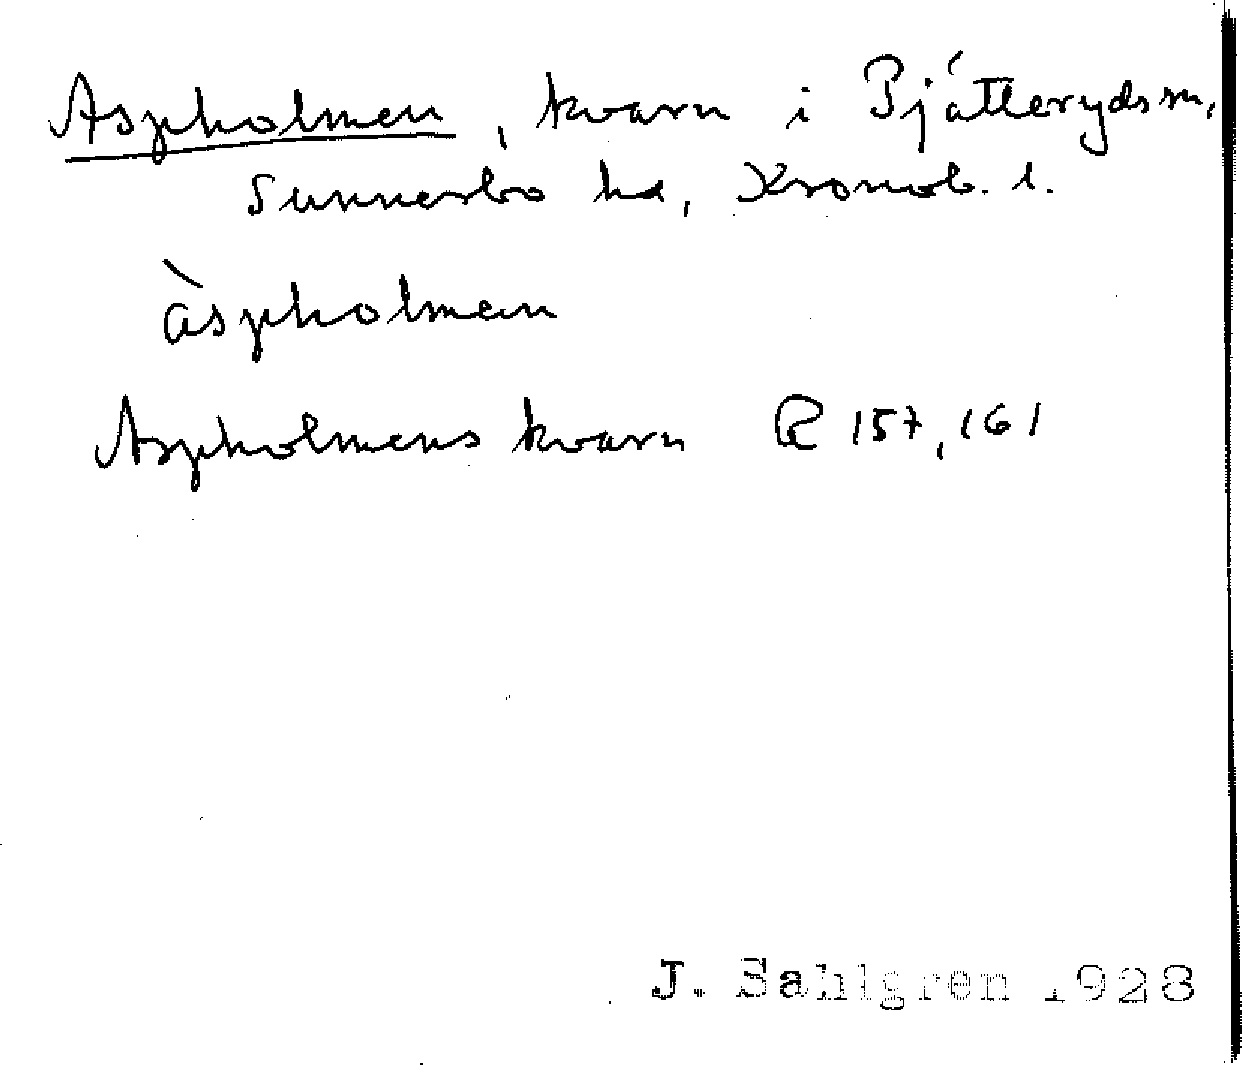 Aspholmen, kvarn i Pjätteryds sn,
Sunnerbo hd, Kronob. l.
àspholmen
Aspholmens kvarn R 157, 161
J. Sahlgren 1928